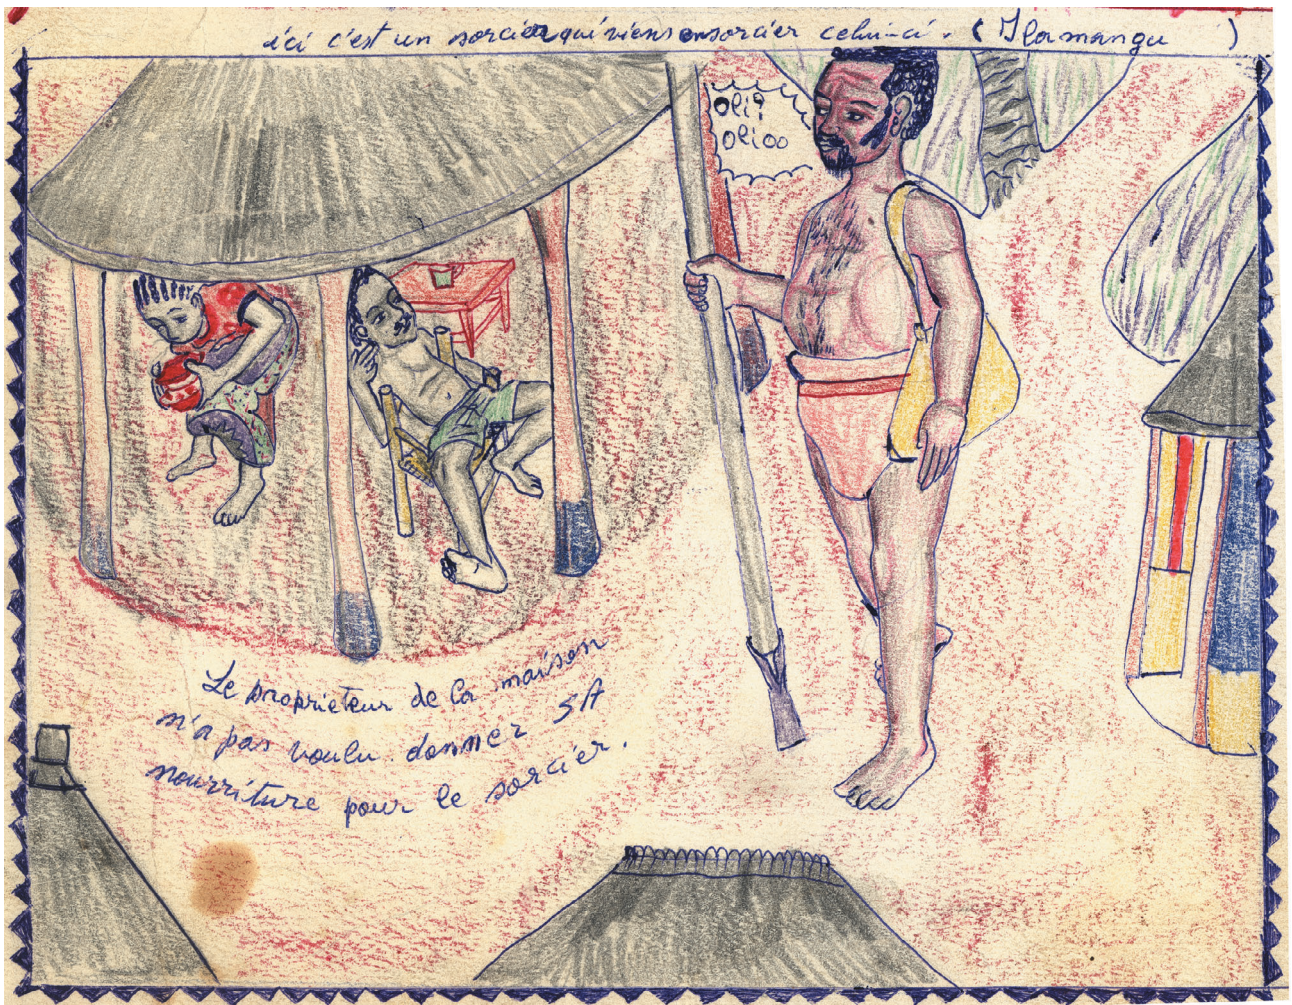 ici c'est un sorcier qui viens ensorcier celui-ci. (Ilamangu )
Oli?
Olioo
Le proprieteur de la maison
n'a pas voulu donner SA
nourriture pour le sorcier.